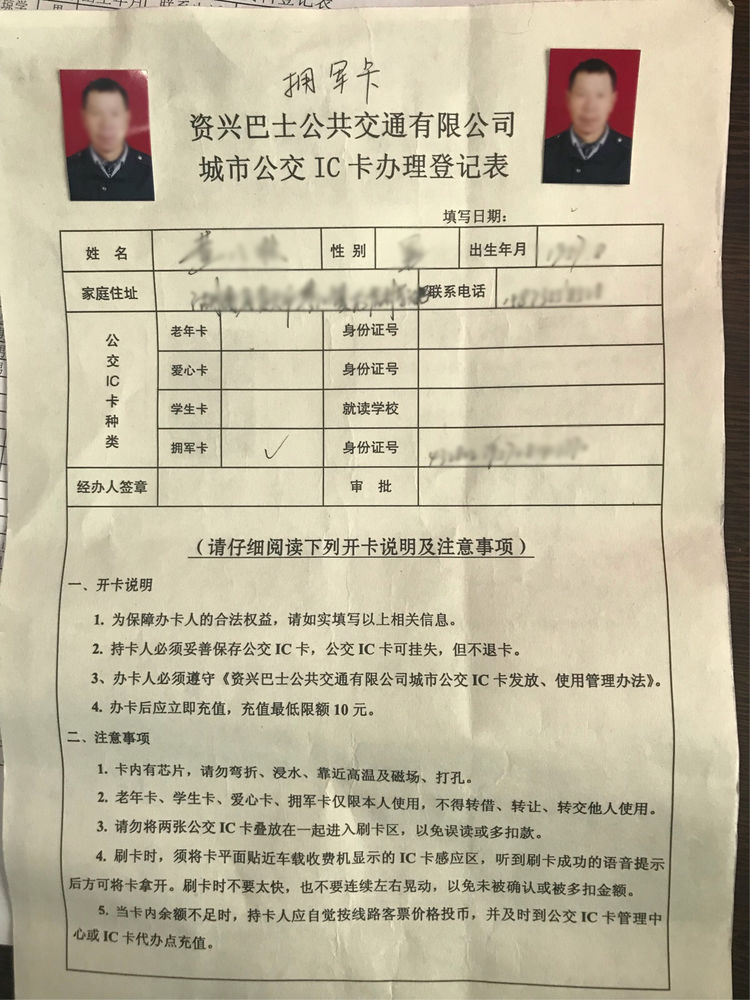 拥军卡
资兴巴士公共交通有限公司
城市公交 IC 卡办理登记表
填写日期：
姓 名 性 别 出生年月
家庭住址 联系电话
公交IC卡种类
老年卡 身份证号
爱心卡 身份证号
学生卡 就读学校
拥军卡 ✓ 身份证号
经办人签章 审 批
（请仔细阅读下列开卡说明及注意事项）
一、开卡说明
1. 为保障办卡人的合法权益，请如实填写以上相关信息。
2. 持卡人必须妥善保存公交 IC 卡，公交 IC 卡可挂失，但不退卡。
3、办卡人必须遵守《资兴巴士公共交通有限公司城市公交 IC 卡发放、使用管理办法》。
4. 办卡后应立即充值，充值最低限额 10 元。
二、注意事项
1. 卡内有芯片，请勿弯折、浸水、靠近高温及磁场、打孔。
2. 老年卡、学生卡、爱心卡、拥军卡仅限本人使用，不得转借、转让、转交他人使用。
3. 请勿将两张公交 IC 卡叠放在一起进入刷卡区，以免误读或多扣款。
4. 刷卡时，须将卡平面贴近车载收费机显示的 IC 卡感应区，听到刷卡成功的语音提示
后方可将卡拿开。刷卡时不要太快，也不要连续左右晃动，以免未被确认或被多扣金额。
5. 当卡内余额不足时，持卡人应自觉按线路客票价格投币，并及时到公交 IC 卡管理中
心或 IC 卡代办点充值。